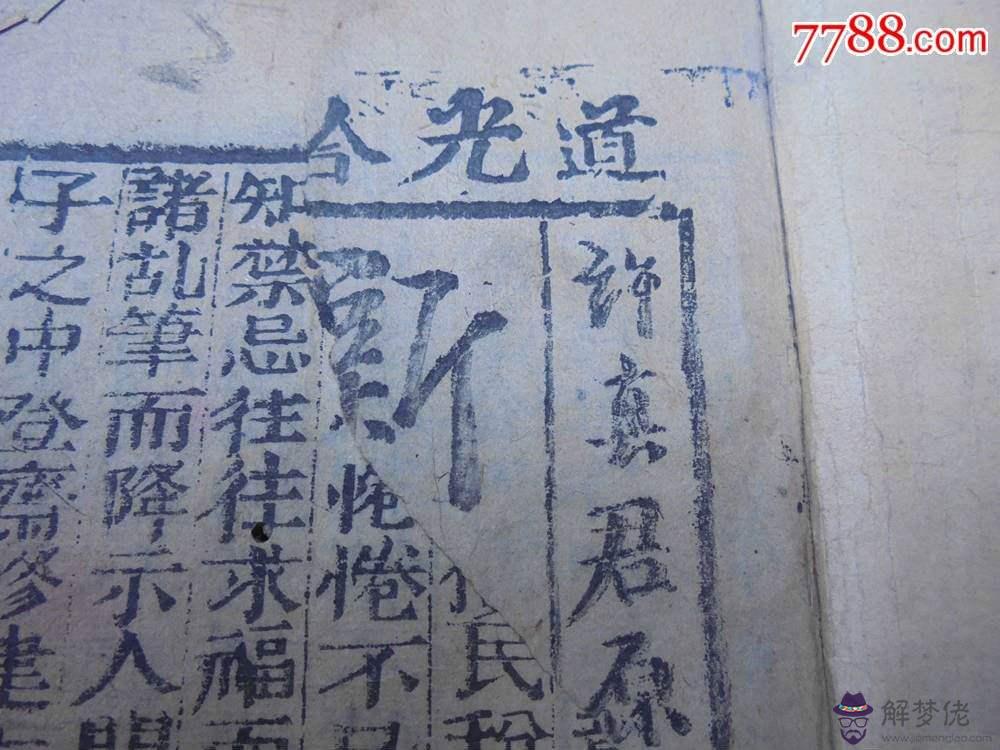 7788.com
道光
許真君
新
民
惓惓不
知禁忌往往求福而
諸乱筆而降示入
子之中登齋修建
解梦佬
www.jiemenglao.com